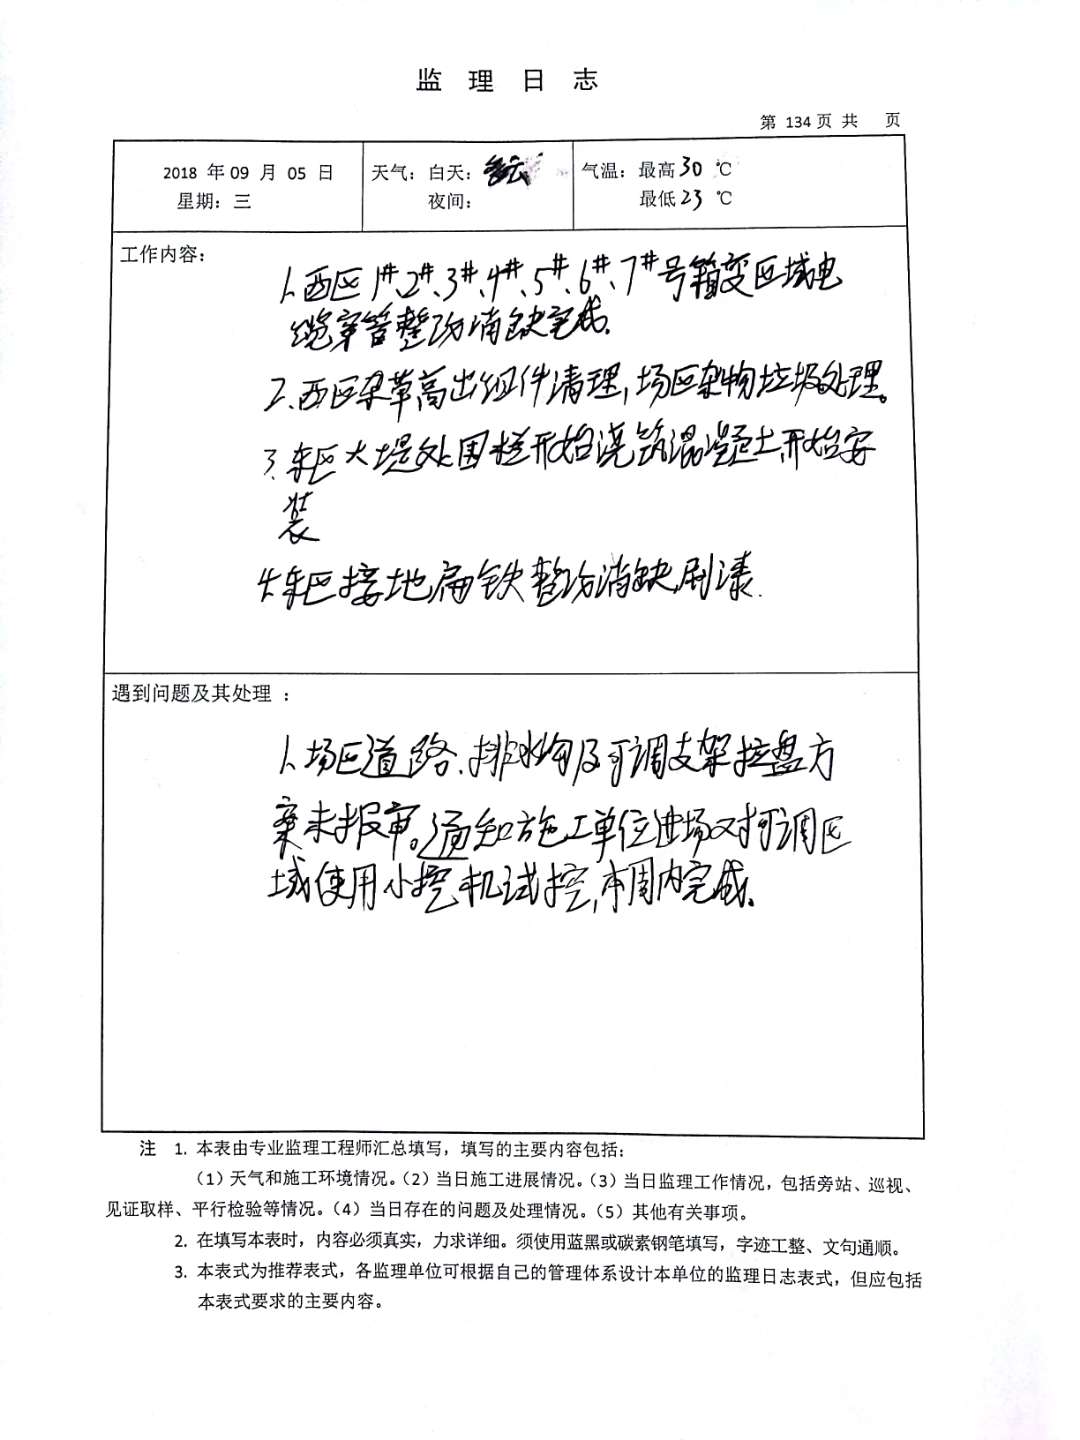 监 理 日 志
第 134 页 共 页
2018 年 09 月 05 日
星期：三
天气：白天：多云
夜间：
气温：最高 30 ℃
最低 23 ℃
工作内容：
1、西区1#、2#、3#、4#、5#、6#、7#号箱变区域电
缆穿管整改消缺完成.
2、西区杂草高出组件清理,场区杂物垃圾处理。
3、东区大堤处围栏开始浇筑混凝土,开始安
装
4、东区接地扁铁整改消缺,刷漆.
遇到问题及其处理 ：
1、场区道路、排水沟及可调支架拉盘方
案未报审。通知施工单位进场对可调区
域使用小挖机试挖,本周内完成.
注 1. 本表由专业监理工程师汇总填写，填写的主要内容包括：
（1）天气和施工环境情况。（2）当日施工进展情况。（3）当日监理工作情况，包括旁站、巡视、
见证取样、平行检验等情况。（4）当日存在的问题及处理情况。（5）其他有关事项。
2. 在填写本表时，内容必须真实，力求详细。须使用蓝黑或碳素钢笔填写，字迹工整、文句通顺。
3. 本表式为推荐表式，各监理单位可根据自己的管理体系设计本单位的监理日志表式，但应包括
本表式要求的主要内容。